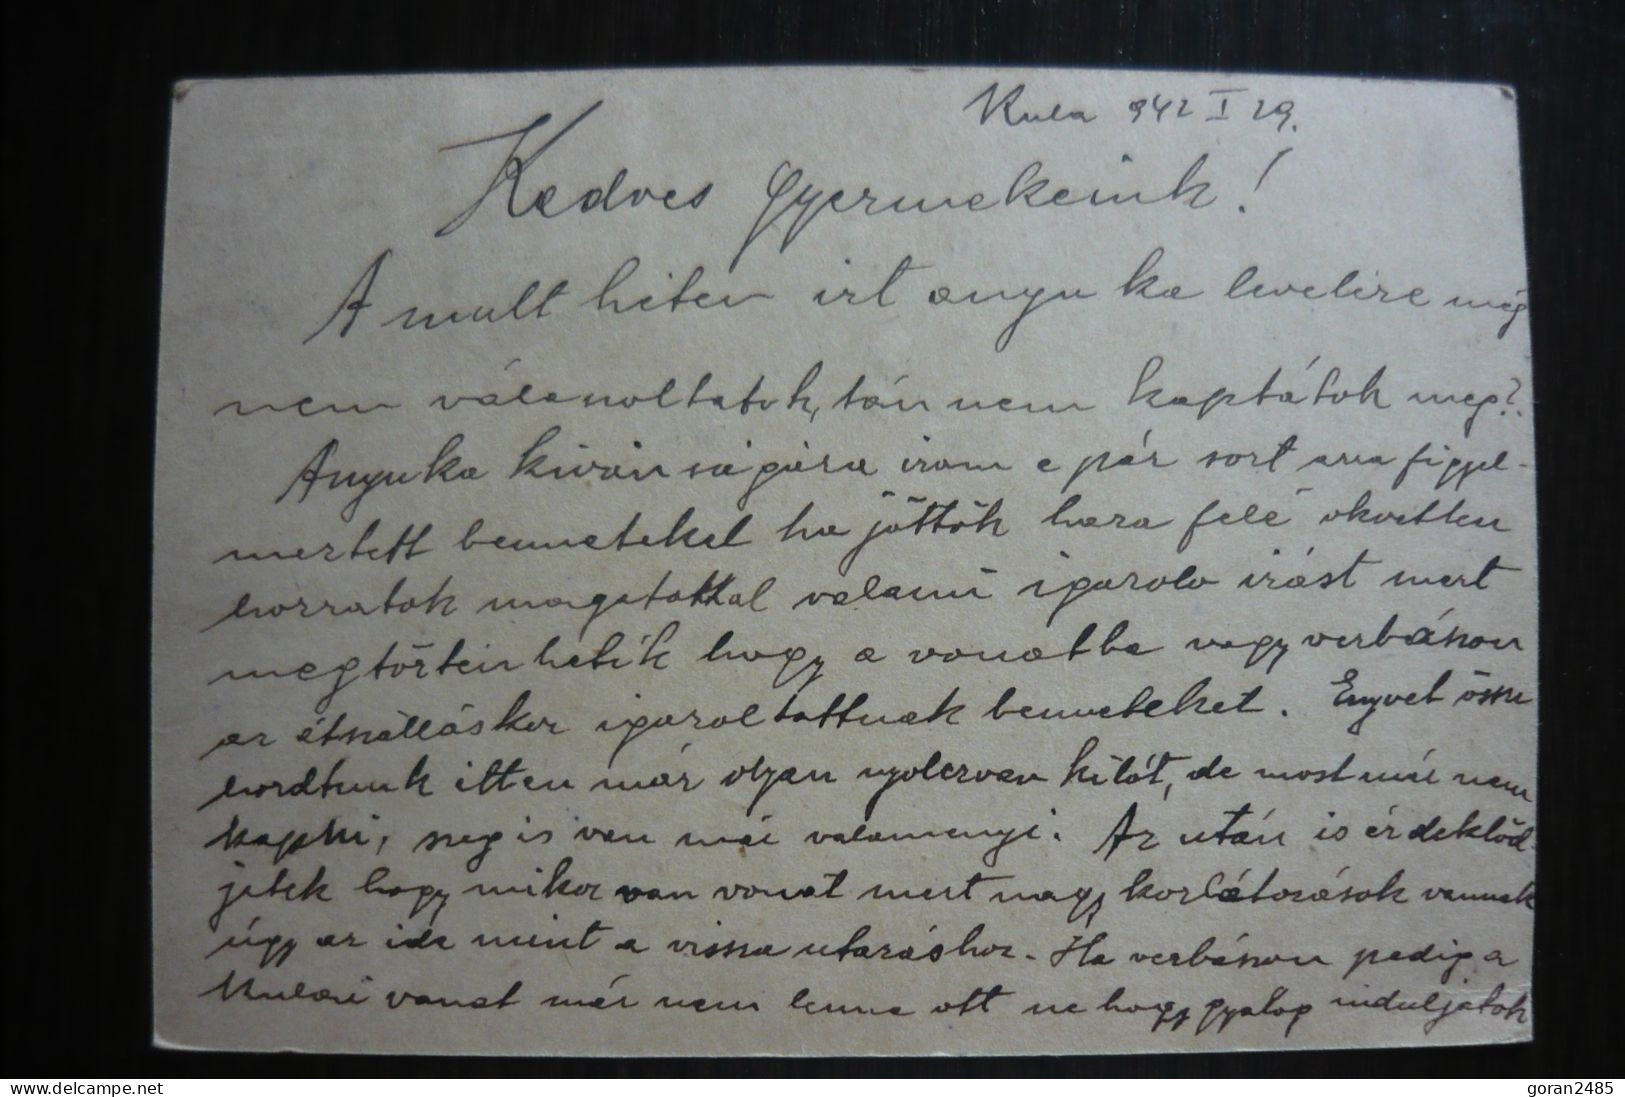 Kula 942 I 29.
Kedves Gyermekeink!
A mult héten irt anyuka levelére még
nem válaszoltatok, tán nem kaptátok meg?
Anyuka kivánságára irom e pár sort arra figyel-
meztett benneteket ha jöttök haza felé okvetlen
hozzatok magatokkal valami igazoló irást mert
megtörténhetik hogy a vonatba vagy verbászon
az átszálláskor igazoltattnak benneteket. Enyvet össze
hordtunk itten már olyan nyolczvan kilót, de most már nem
kapni, meg is van már valamenyi. Az után is érdeklöd-
jetek hogy mikor van vonat mert nagy korlátozások vannak
úgy az ide mint a vissza utazáshoz. Ha verbászon pedig a
Kulai vonat már nem lenne ott ne hogy gyalog induljatok
delcampe.net
goran2485